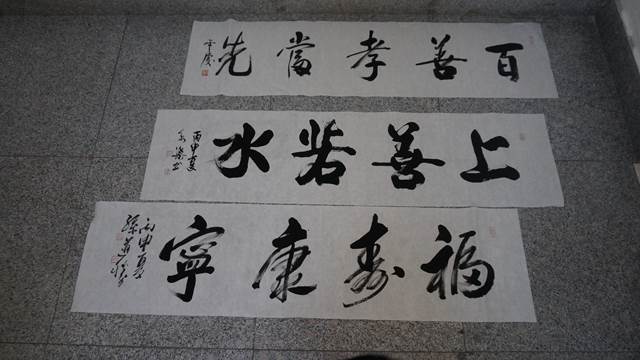 百善孝當先
上善若水
丙申夏
福壽康寧
丙申夏